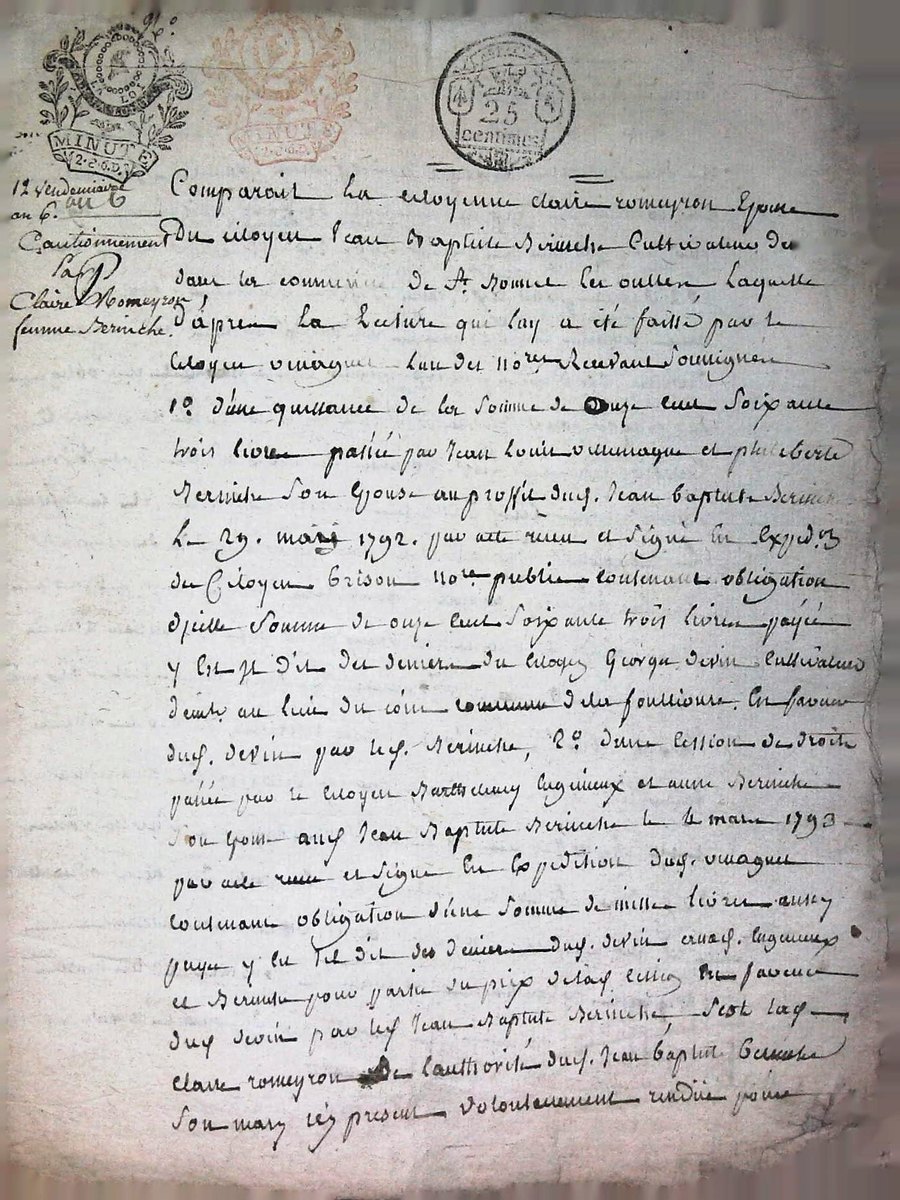 LA LOI
MINUTE
2.S.6.D.
MINUTE
2.S.6.D.
25
centimes
12 Vendemiaire
an 6. an 6
Cautionnement
Claire Romeyron
femme Berinche
Comparait La citoyenne claire romeyron Epouse
Du citoyen Jean Baptiste Berinche Cultivateur de
dans la commune de St. Bonnet les oulles Laquelle
d'áprés la Lecture qui luy a été faitte par le
Citoyen vinagnet L'un des nores Recevant Soussignés
1º d'une quittance de la Somme de Onze cent Soixante
trois livres passée par Jean Louis villemagne et philiberte
Berinche Son Epouse au proffit dud. Jean baptiste Berinche
Le 29. mars 1792. par acte recu et Signé En Expedon
du Citoyen brison nore public contenant obligation
d'icelle Somme de onze cent Soixante trois livres payée
y Est Jl dit des deniers du citoyen George devin Cultivateur
au lieu du commune de la fouillouse. En faveur
dud. devin par led. Berinche, 2º d'une Cession de droits
passée par le citoyen Barthelemy et anne Berinche
Son Epouse aud Jean Baptiste Berinche le 4 mars 1793
par acte recu et Signé En Expedition dud. vinagnet
contenant obligation d'une Somme de mille livres aussy
payée y Est Jl dit des deniers dud. devin
et Berinche pour partie du prix de lad. cession En faveur
dud devin par led Jean Baptiste Berinche, S'est lad.
Claire romeyron De l'authorité dud. Jean baptiste berinche
Son mary icy present volontairement rendüe